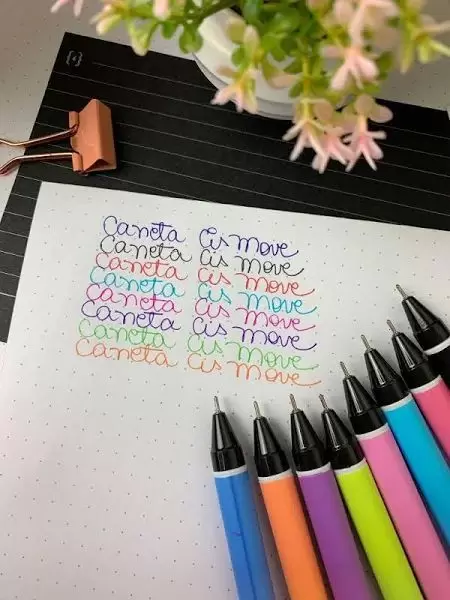 Caneta Cis move
Caneta Cis move
Caneta Cis move
Caneta Cis move
Caneta Cis move
Caneta Cis move
Caneta Cis move
Caneta Cis move